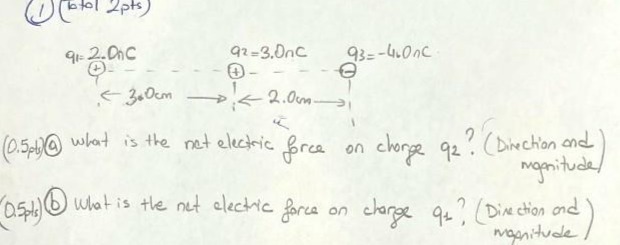 ① (Total 2pts)
q1=2.0nC q2=3.0nC q3=-4.0nC
3.0cm 2.0cm
(0.5pts) ⓐ what is the net electric force on charge q2? (Direction and magnitude)
(0.5pts) ⓑ What is the net electric force on charge q1? (Direction and magnitude)